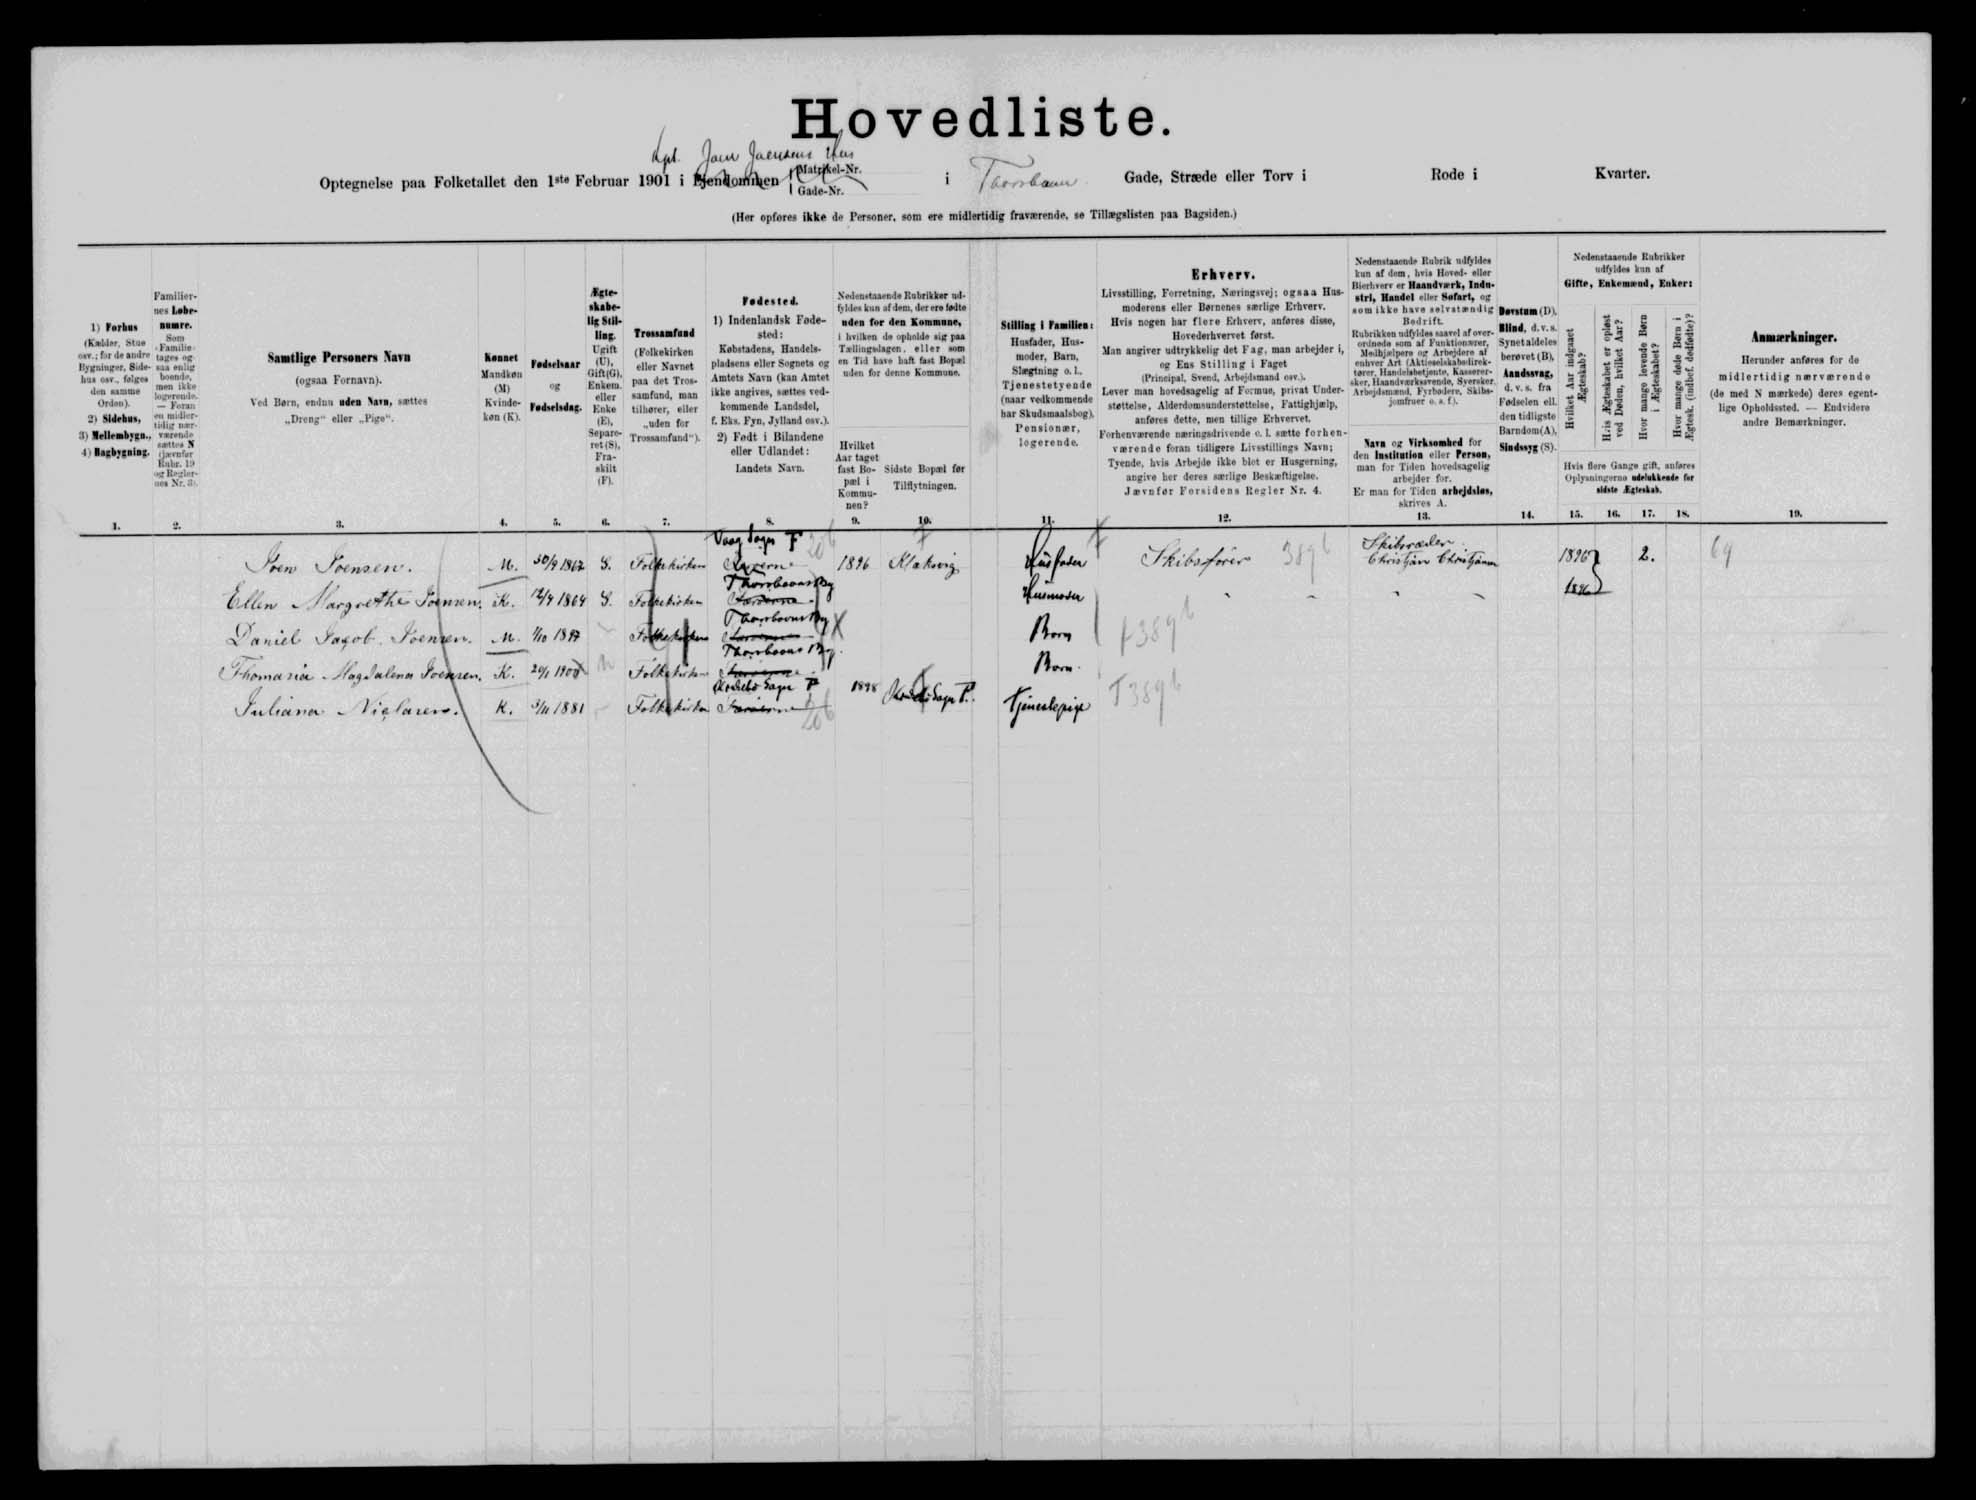 Hovedliste.
Kpt. Joen Joensens Hus
Optegnelse paa Folketallet den 1ste Februar 1901 i Ejendommen { Matrikel-Nr. Gade-Nr. i Thorshavn Gade, Stræde eller Torv i Rode i Kvarter.
(Her opføres ikke de Personer, som ere midlertidig fraværende, se Tillægslisten paa Bagsiden.)
1) Forhus (Kælder, Stue osv.; for de andre Bygninger, Sidehus osv., følges den samme Orden).
2) Sidehus,
3) Mellembygn.,
4) Bagbygning.
Familiernes Løbenumre.
Som Familie tages ogsaa enlig boende, men ikke logerende. — Foran en midlertidig nærværende sættes N (jævnfør Rubr. 19 og Reglernes Nr. 3).
Samtlige Personers Navn
(ogsaa Fornavn).
Ved Børn, endnu uden Navn, sættes
„Dreng“ eller „Pige“.
Kønnet
Mandkøn (M)
Kvindekøn (K).
Fødselsaar
og
Fødselsdag.
Ægteskabelig Stilling.
Ugift (U), Gift (G), Enkem. eller Enke (E), Separeret (S), Fraskilt (F).
Trossamfund
(Folkekirken eller Navnet paa det Trossamfund, man tilhører, eller „uden for Trossamfund“).
Fødested.
1) Indenlandsk Fødested:
Købstadens, Handelspladsens eller Sognets og Amtets Navn (kan Amtet ikke angives, sættes vedkommende Landsdel, f. Eks. Fyn, Jylland osv.).
2) Født i Bilandene eller Udlandet:
Landets Navn.
Nedenstaaende Rubrikker udfyldes kun af dem, der ere fødte uden for den Kommune, i hvilken de opholde sig paa Tællingsdagen, eller som en Tid have haft fast Bopæl uden for denne Kommune.
Hvilket Aar taget fast Bopæl i Kommunen?
Sidste Bopæl før Tilflytningen.
Stilling i Familien:
Husfader, Husmoder, Barn, Slægtning o. l., Tjenestetyende (naar vedkommende har Skudsmaalsbog), Pensionær, logerende.
Erhverv.
Livsstilling, Forretning, Næringsvej; ogsaa Husmoderens eller Børnenes særlige Erhverv.
Hvis nogen har flere Erhverv, anføres disse, Hovederhvervet først.
Man angiver udtrykkelig det Fag, man arbejder i, og Ens Stilling i Faget
(Principal, Svend, Arbejdsmand osv.).
Lever man hovedsagelig af Formue, privat Understøttelse, Alderdomsunderstøttelse, Fattighjælp, anføres dette, men tillige Erhvervet.
Forhenværende næringsdrivende o. l. sætte forhenværende foran tidligere Livsstillings Navn; Tyende, hvis Arbejde ikke blot er Husgerning, angive her deres særlige Beskæftigelse.
Jævnfør Forsidens Regler Nr. 4.
Nedenstaaende Rubrik udfyldes kun af dem, hvis Hoved- eller Bierhverv er Haandværk, Industri, Handel eller Søfart, og som ikke have selvstændig Bedrift.
Rubrikken udfyldes saavel af overordnede som af Funktionærer, Medhjælpere og Arbejdere af enhver Art (Aktieselskabsdirektører, Handelsbetjente, Kasserersker, Haandværkssvende, Syersker, Arbejdsmænd, Fyrbødere, Skibsjomfruer o. s. f.).
Navn og Virksomhed for den Institution eller Person, man for Tiden hovedsagelig arbejder for.
Er man for Tiden arbejdsløs, skrives A.
Døvstum (D), Blind, d. v. s. Synet aldeles berøvet (B), Aandssvag, d. v. s. fra Fødselen ell. den tidligste Barndom (A), Sindssyg (S).
Nedenstaaende Rubrikker udfyldes kun af
Gifte, Enkemænd, Enker:
Hvilket Aar indgaaet Ægteskab?
Hvis Ægteskabet er opløst ved Døden, hvilket Aar?
Hvor mange levende Børn i Ægteskabet?
Hvor mange døde Børn i Ægtesk. (indbef. dødfødte)?
Hvis flere Gange gift, anføres Oplysningerne udelukkende for sidste Ægteskab.
Anmærkninger.
Herunder anføres for de midlertidig nærværende (de med N mærkede) deres egentlige Opholdssted. — Endvidere andre Bemærkninger.
1. 2. 3. 4. 5. 6. 7. 8. 9. 10. 11. 12. 13. 14. 15. 16. 17. 18. 19.
Vaag Sogn F 206 Skibsreder
Joen Joensen. M. 30/9 1867 G. Folkekirken Færøerne 1896 Klaksvig Husfader Skibsfører 3896 Christjan Christjansen 1896 2. 69
Thorshavns By
Ellen Margrethe Joensen. K. 12/4 1864 G. Folkekirken Færøerne Husmoder 1896
Thorshavns By
Daniel Jacob Joensen. M. 1/10 1897 Folkekirken Færøerne Barn 3896
Thorshavns By
Thomasia Magdalena Joensen. K. 20/1 1900 Folkekirken Færøerne Barn
Sogn F 1898 Sogn F.
Juliana Nielsen. K. 3/11 1881 Folkekirken Færøerne 206 Tjenestepige T 3896